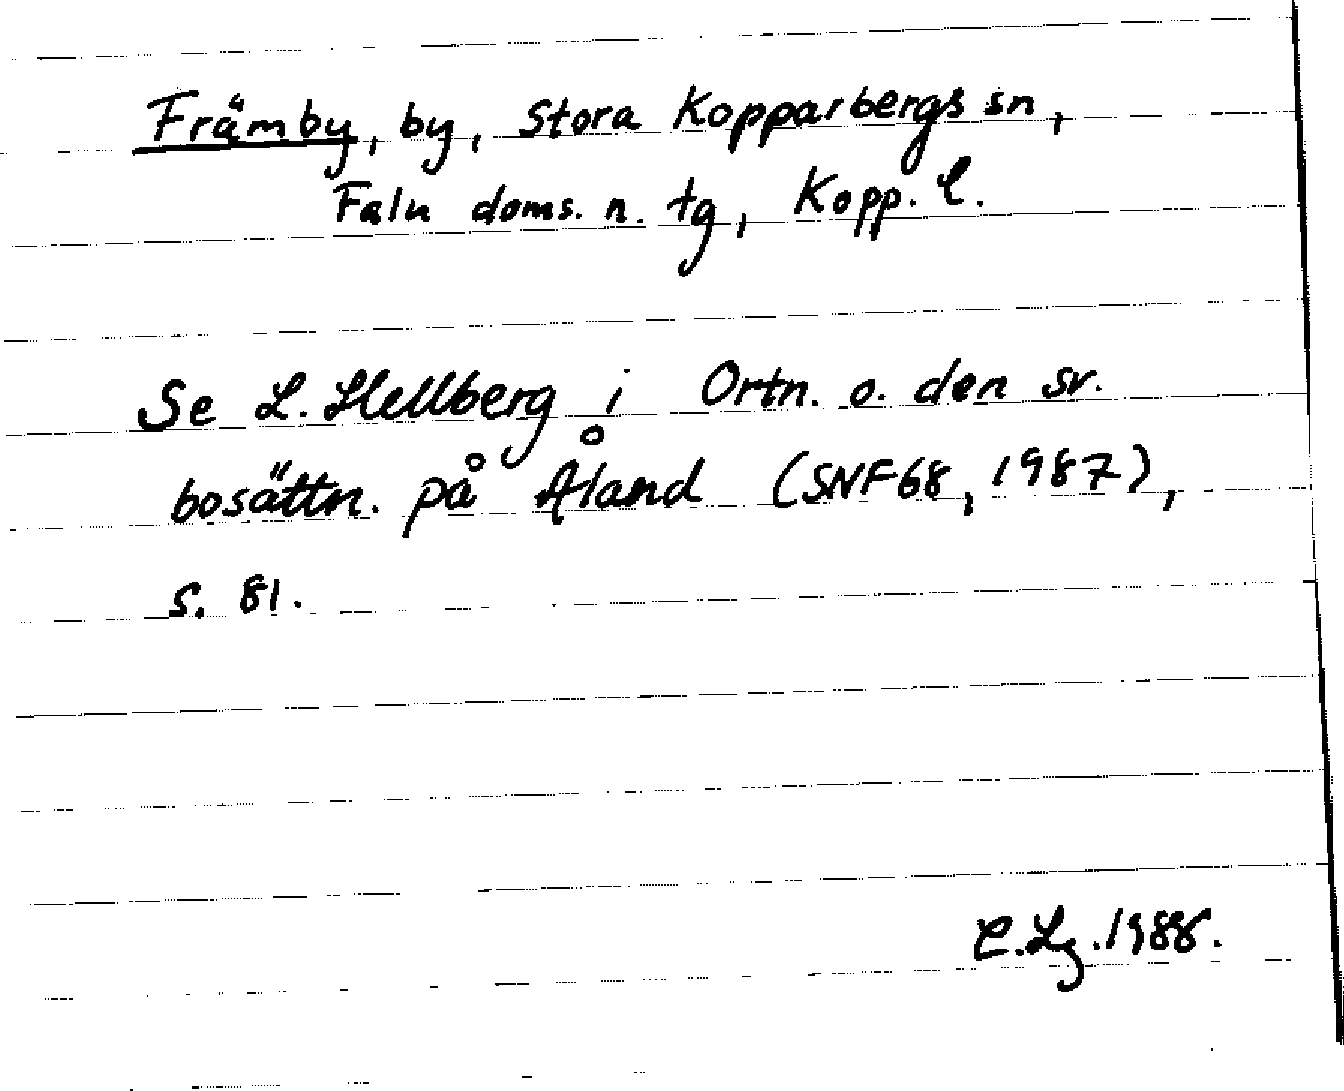 Främby, by, Stora Kopparbergs sn,
Falu doms. n. tg, Kopp. l.
Se L. Hellberg i Ortn. o. den sv.
bosättn. på Åland (SNF68, 1987),
s. 81.
C.Lg.1988.